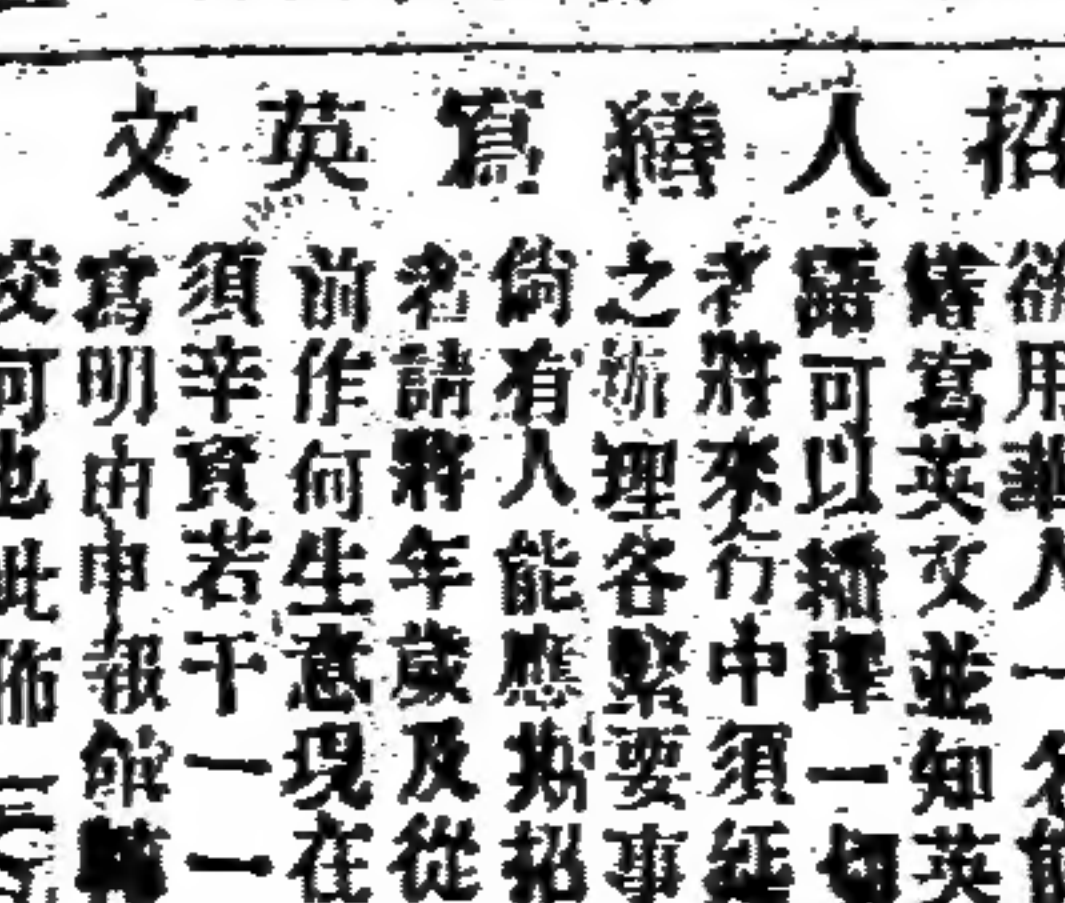 招人繕寫英文
欲用華人一名能
繕寫英文並知英
語可以繙譯一切
者將來行中須經
之理各緊要事
倘有人能應招
者請將年歲及從
前作何生意現在
須辛資若干一一
寫明由申報館轉
交可也此佈